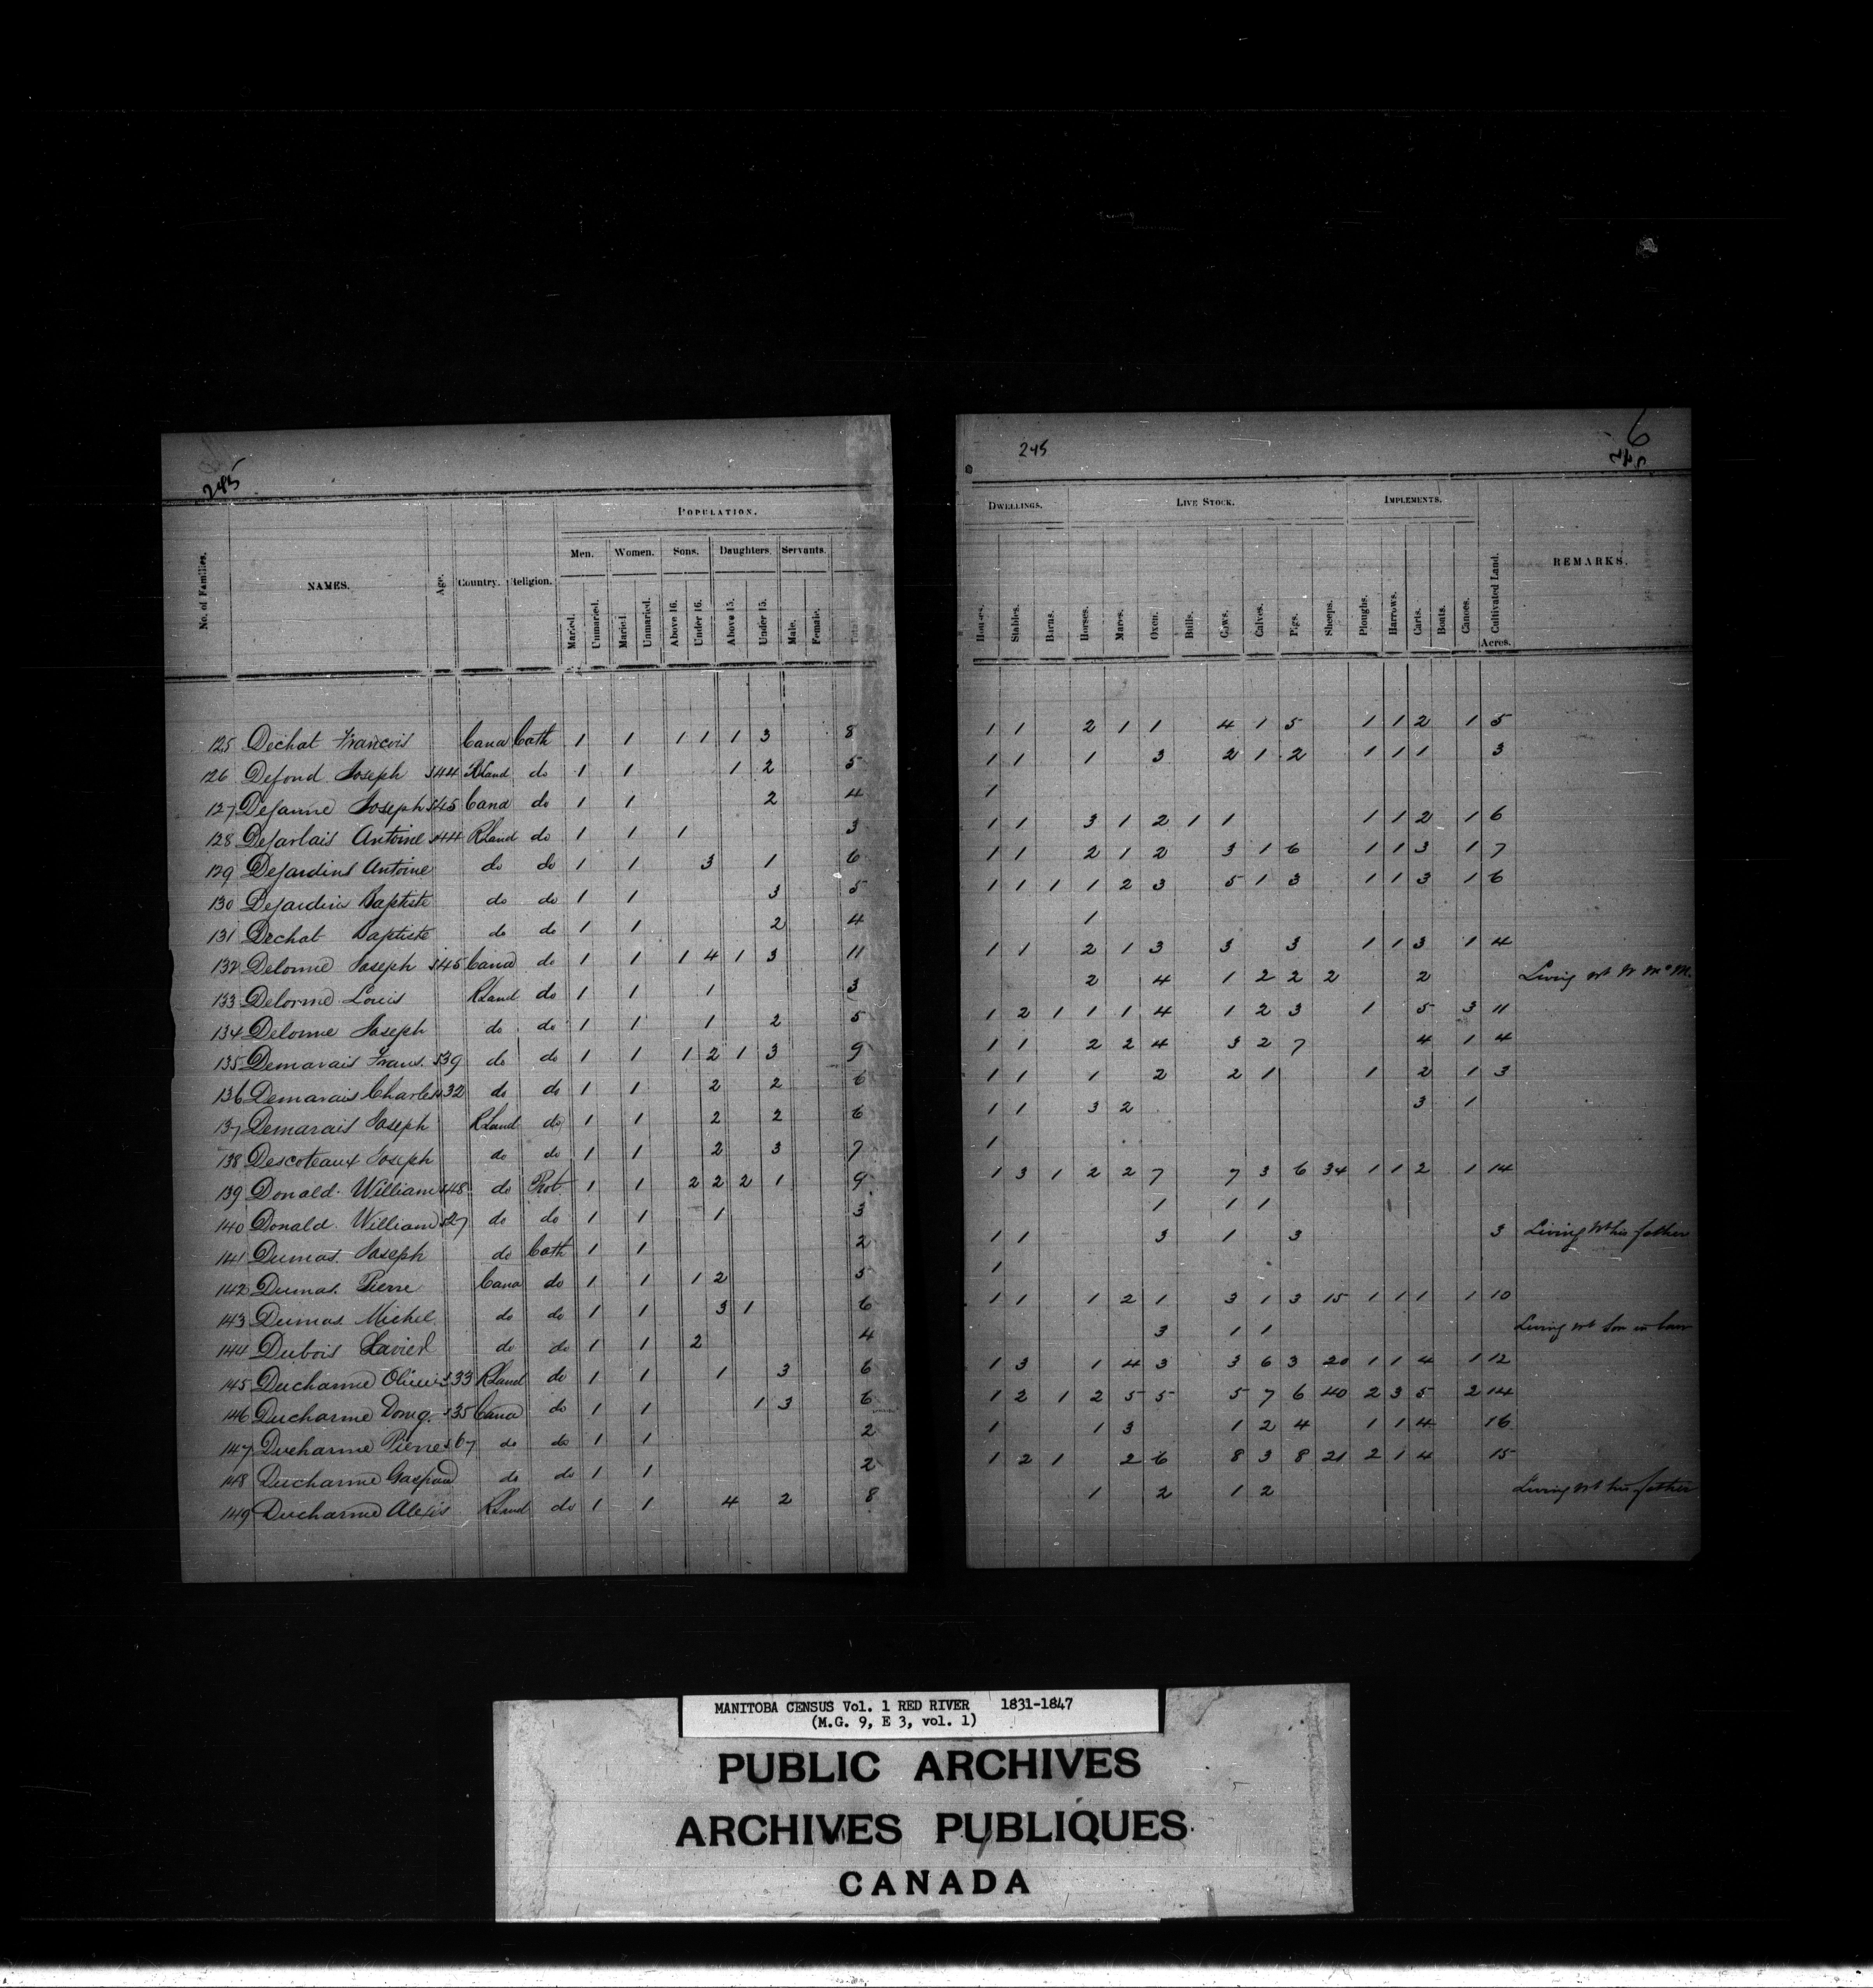 245
POPULATION.
Men. Women. Sons. Daughters. Servants.
No. of Families. NAMES. Age. Country. Religion. Married. Unmarried. Married. Unmarried. Above 16. Under 16. Above 15. Under 15. Male. Female.
125 Dechat Francois Cana Cath 1 1 1 1 1 3 8
126 Defond Joseph 44 RLand do 1 1 1 2 5
127 Dejarme Joseph 45 Cana do 1 1 2 4
128 Dejarlais Antoine 44 RLand do 1 1 1 3
129 Dejardins Antoine do do 1 1 3 1 6
130 Dejardins Baptiste do do 1 1 3 5
131 Dechat Baptiste do do 1 1 2 4
132 Delorme Joseph 45 Cana do 1 1 1 4 1 3 11
133 Delorme Louis RLand do 1 1 1 3
134 Delorme Joseph do do 1 1 1 2 5
135 Demarais Frans. 39 do do 1 1 1 2 1 3 9
136 Demarais Charles 32 do do 1 1 2 2 6
137 Demarais Joseph RLand do 1 1 2 2 6
138 Descoteaux Joseph do do 1 1 2 3 7
139 Donald William 48 do Prot. 1 1 2 2 2 1 9
140 Donald William 27 do do 1 1 1 3
141 Dumas Joseph do Cath 1 1 2
142 Dumas Pierre Cana do 1 1 1 2 5
143 Dumas Michel do do 1 1 3 1 6
144 Dubois Xavier do do 1 1 2 4
145 Ducharme 33 RLand do 1 1 1 3 6
146 Ducharme Domq. 35 Cana do 1 1 1 3 6
147 Ducharme Pierre 67 do do 1 1 2
148 Ducharme Gaspard do do 1 1 2
149 Ducharme Alexis RLand do 1 1 4 2 8
245
245
DWELLINGS. LIVE STOCK. IMPLEMENTS.
Houses. Stables. Barns. Horses. Mares. Oxen. Bulls. Cows. Calves. Pigs. Sheeps. Ploughs. Harrows. Carts. Boats. Canoes. Cultivated Land. Acres. REMARKS.
1 1 2 1 1 4 1 5 1 1 2 1 5
1 1 1 3 2 1 2 1 1 1 3
1
1 1 3 1 2 1 1 1 1 2 1 6
1 1 2 1 2 3 1 6 1 1 3 1 7
1 1 1 1 2 3 5 1 3 1 1 3 1 6
1
1 1 2 1 3 3 3 1 1 3 1 4
2 4 1 2 2 2 2 Living wt
1 2 1 1 1 4 1 2 3 1 5 3 11
1 1 2 2 4 3 2 7 4 1 4
1 1 1 2 2 1 1 2 1 3
1 1 3 2 3 1
1
1 3 1 2 2 7 7 3 6 34 1 1 2 1 14
1 1 1
1 1 3 1 3 3 Living wt his father
1
1 1 1 2 1 3 1 3 15 1 1 1 1 10
3 1 1 Living wt Son in law
1 3 1 4 3 3 6 3 20 1 1 4 1 12
1 2 1 2 5 5 5 7 6 40 2 3 5 2 14
1 1 3 1 2 4 1 1 4 16
1 2 1 2 6 8 3 8 21 2 1 4 15
1 2 1 2 Living wt his father
MANITOBA CENSUS Vol. 1 RED RIVER 1831-1847
(M.G. 9, E 3, vol. 1)
PUBLIC ARCHIVES
ARCHIVES PUBLIQUES
CANADA